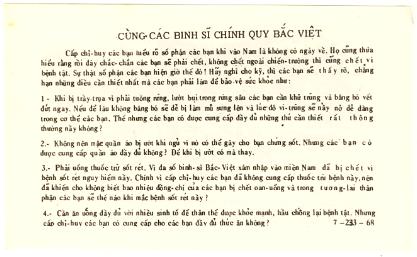 CÙNG CÁC BINH SĨ CHÍNH QUY BẮC VIỆT
Cấp chỉ-huy các bạn hiểu rõ số phận các bạn khi vào Nam là không có ngày về. Họ cũng thừa
hiểu rằng rồi đây chắc-chắn các bạn sẽ phải chết, không chết ngoài chiến-trường thì cũng chết vì
bệnh tật. Sự thật số phận các bạn hiện giờ thế đó! Hãy nghĩ cho kỹ, thì các bạn sẽ thấy rõ, chẳng
hạn những điều cần thiết nhất mà các bạn phải làm để bảo vệ sức khỏe như:
1.- Khi bị trầy-trụa vì phải tuông rừng, lướt bụi trong rừng sâu các bạn cần khử trùng và băng bó vết
đứt ngay. Nếu để lâu không băng bó sẽ dễ bị làm mủ sưng lên và lúc đó vi-trùng sẽ nẩy nở dễ dàng
trong cơ thể các bạn. Thế nhưng các bạn có được cung cấp đầy đủ những thứ cần thiết rất thông
thường này không?
2.- Không nên mặc quần áo bị ướt khi ngủ vì nó có thể gây cho bạn chứng sốt. Nhưng các bạn có
được cung cấp quần áo đầy đủ không? Để khi bị ướt có mà thay.
3.- Phải uống thuốc trừ sốt rét. Vì đa số binh-sĩ Bắc-Việt xâm nhập vào miền Nam đã bị chết vì
bệnh sốt rét nguy hiểm này. Chính vì cấp chỉ-huy các bạn đã không cung cấp thuốc trị bệnh này, nên
đã khiến cho không biết bao nhiêu đồng-chí của các bạn bị chết oan-uổng và trong tương-lai thân
phận các bạn sẽ thế nào khi mắc bệnh sốt rét này?
4.- Cần ăn uống đầy đủ với nhiều sinh tố để thân thể được khỏe mạnh, hầu chống lại bệnh tật. Nhưng
cấp chỉ-huy các bạn có cung cấp cho các bạn đầy đủ thức ăn không?
7-233-68